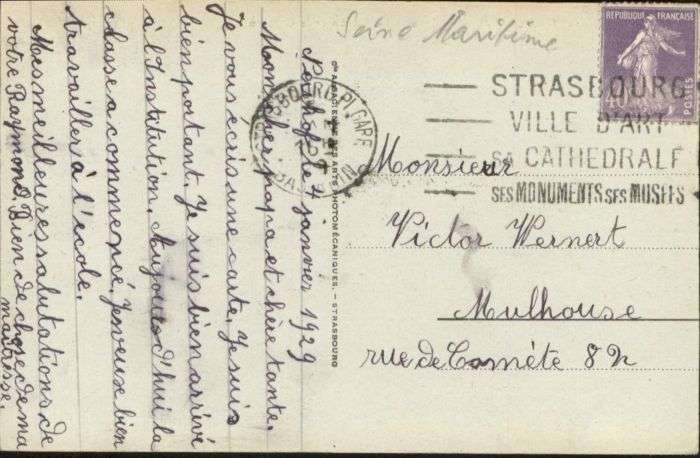 Seine Maritime
le 4 janvier 1929
Mon cher papa et chère tante.
Je vous écris une carte. Je suis
bien portant. Je suis bien arrivé
à l'Institution. Aujourd'hui la
classe a commencé. Je veux bien
travailler à l'école.
Mes meilleures salutations de
votre Raymond. Bien de chose de ma
maîtresse.
ARTS PHOTOMÉCANIQUES. — STRASBOURG
PL. GARE
BAS-RHIN
STRASBOURG
VILLE D'ART
SA CATHEDRALE
SES MONUMENTS SES MUSÉES
REPUBLIQUE FRANÇAISE
40
POSTES
Monsieur
Victor Wernert
Mulhouse
rue de Comète 8